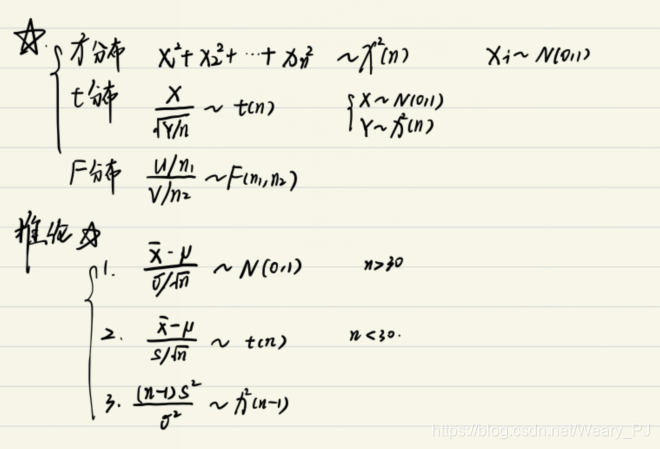 ☆ χ²分布 X₁²+X₂²+…+Xₙ² ~ χ²(n) Xᵢ~N(0,1)
t分布 X/√(Y/n) ~ t(n) X~N(0,1)
Y~χ²(n)
F分布 (U/n₁)/(V/n₂) ~ F(n₁,n₂)
推论 ☆
1. (x̄-μ)/(σ/√n) ~ N(0,1) n>30
2. (x̄-μ)/(S/√n) ~ t(n) n<30.
3. (n-1)S²/σ² ~ χ²(n-1)
https://blog.csdn.net/Weary_PJ